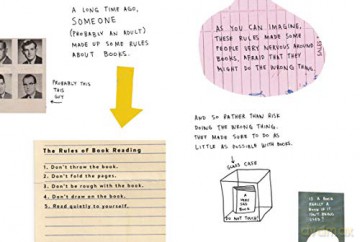 A LONG TIME AGO,
SOMEONE
(PROBABLY AN ADULT)
MADE UP SOME RULES
ABOUT BOOKS.
PROBABLY THIS
THIS
GUY
The Rules of Book Reading
1. Don't throw the book.
2. Don't fold the pages.
3. Don't be rough with the book.
4. Don't draw on the book.
5. Read quietly to yourself.
AS YOU CAN IMAGINE,
THESE RULES MADE SOME
PEOPLE VERY NERVOUS AROUND
BOOKS, AFRAID THAT THEY
MIGHT DO THE WRONG THING.
AND SO RATHER THAN RISK
DOING THE WRONG THING,
THEY MADE SURE TO DO AS
LITTLE AS POSSIBLE WITH BOOKS.
GLASS CASE
A
VERY
SAD
BOOK
DO NOT TOUCH!
IS A BOOK
REALLY A
BOOK IF IT
ISN'T BEING